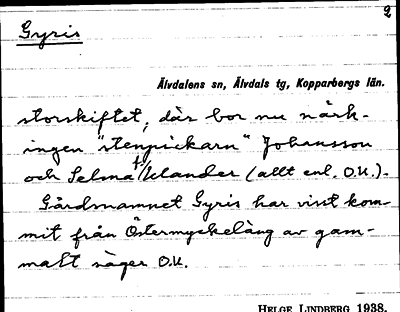 2
Gyris
Älvdalens sn, Älvdals tg, Kopparbergs län.
storskiftet, där bor nu närk-
ingen "stenpickarn" Johansson
och Selma Helander (allt enl. O.U.).
Gårdsnamnet Gyris har visst kom-
mit från Östermyckeläng av gam-
malt säger O.U.
HELGE LINDBERG 1938.